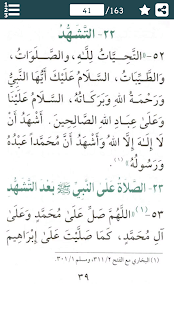 41 /163
٢٢- التَّشَهُّدُ
٥٢-«التَّحِيَّاتُ لِلَّهِ، وَالصَّلَوَاتُ،
وَالطَّيِّبَاتُ، السَّلَامُ عَلَيْكَ أَيُّهَا النَّبِيُّ
وَرَحْمَةُ اللهِ وَبَرَكَاتُهُ، السَّلَامُ عَلَيْنَا
وَعَلَىٰ عِبَادِ اللهِ الصَّالِحِينَ. أَشْهَدُ أَنْ
لَا إِلَهَ إِلَّا اللهُ وَأَشْهَدُ أَنَّ مُحَمَّداً عَبْدُهُ
وَرَسُولُهُ»(١).
٢٣- الصَّلَاةُ عَلَى النَّبِيِّ ﷺ بَعْدَ التَّشَهُّدِ
٥٣-(١)«اللَّهُمَّ صَلِّ عَلَىٰ مُحَمَّدٍ وَعَلَىٰ
آلِ مُحَمَّدٍ، كَمَا صَلَّيْتَ عَلَىٰ إِبْرَاهِيمَ
(١) البخاري مع الفتح ٣١١/٢، ومسلم ٣٠١/١.
٣٩